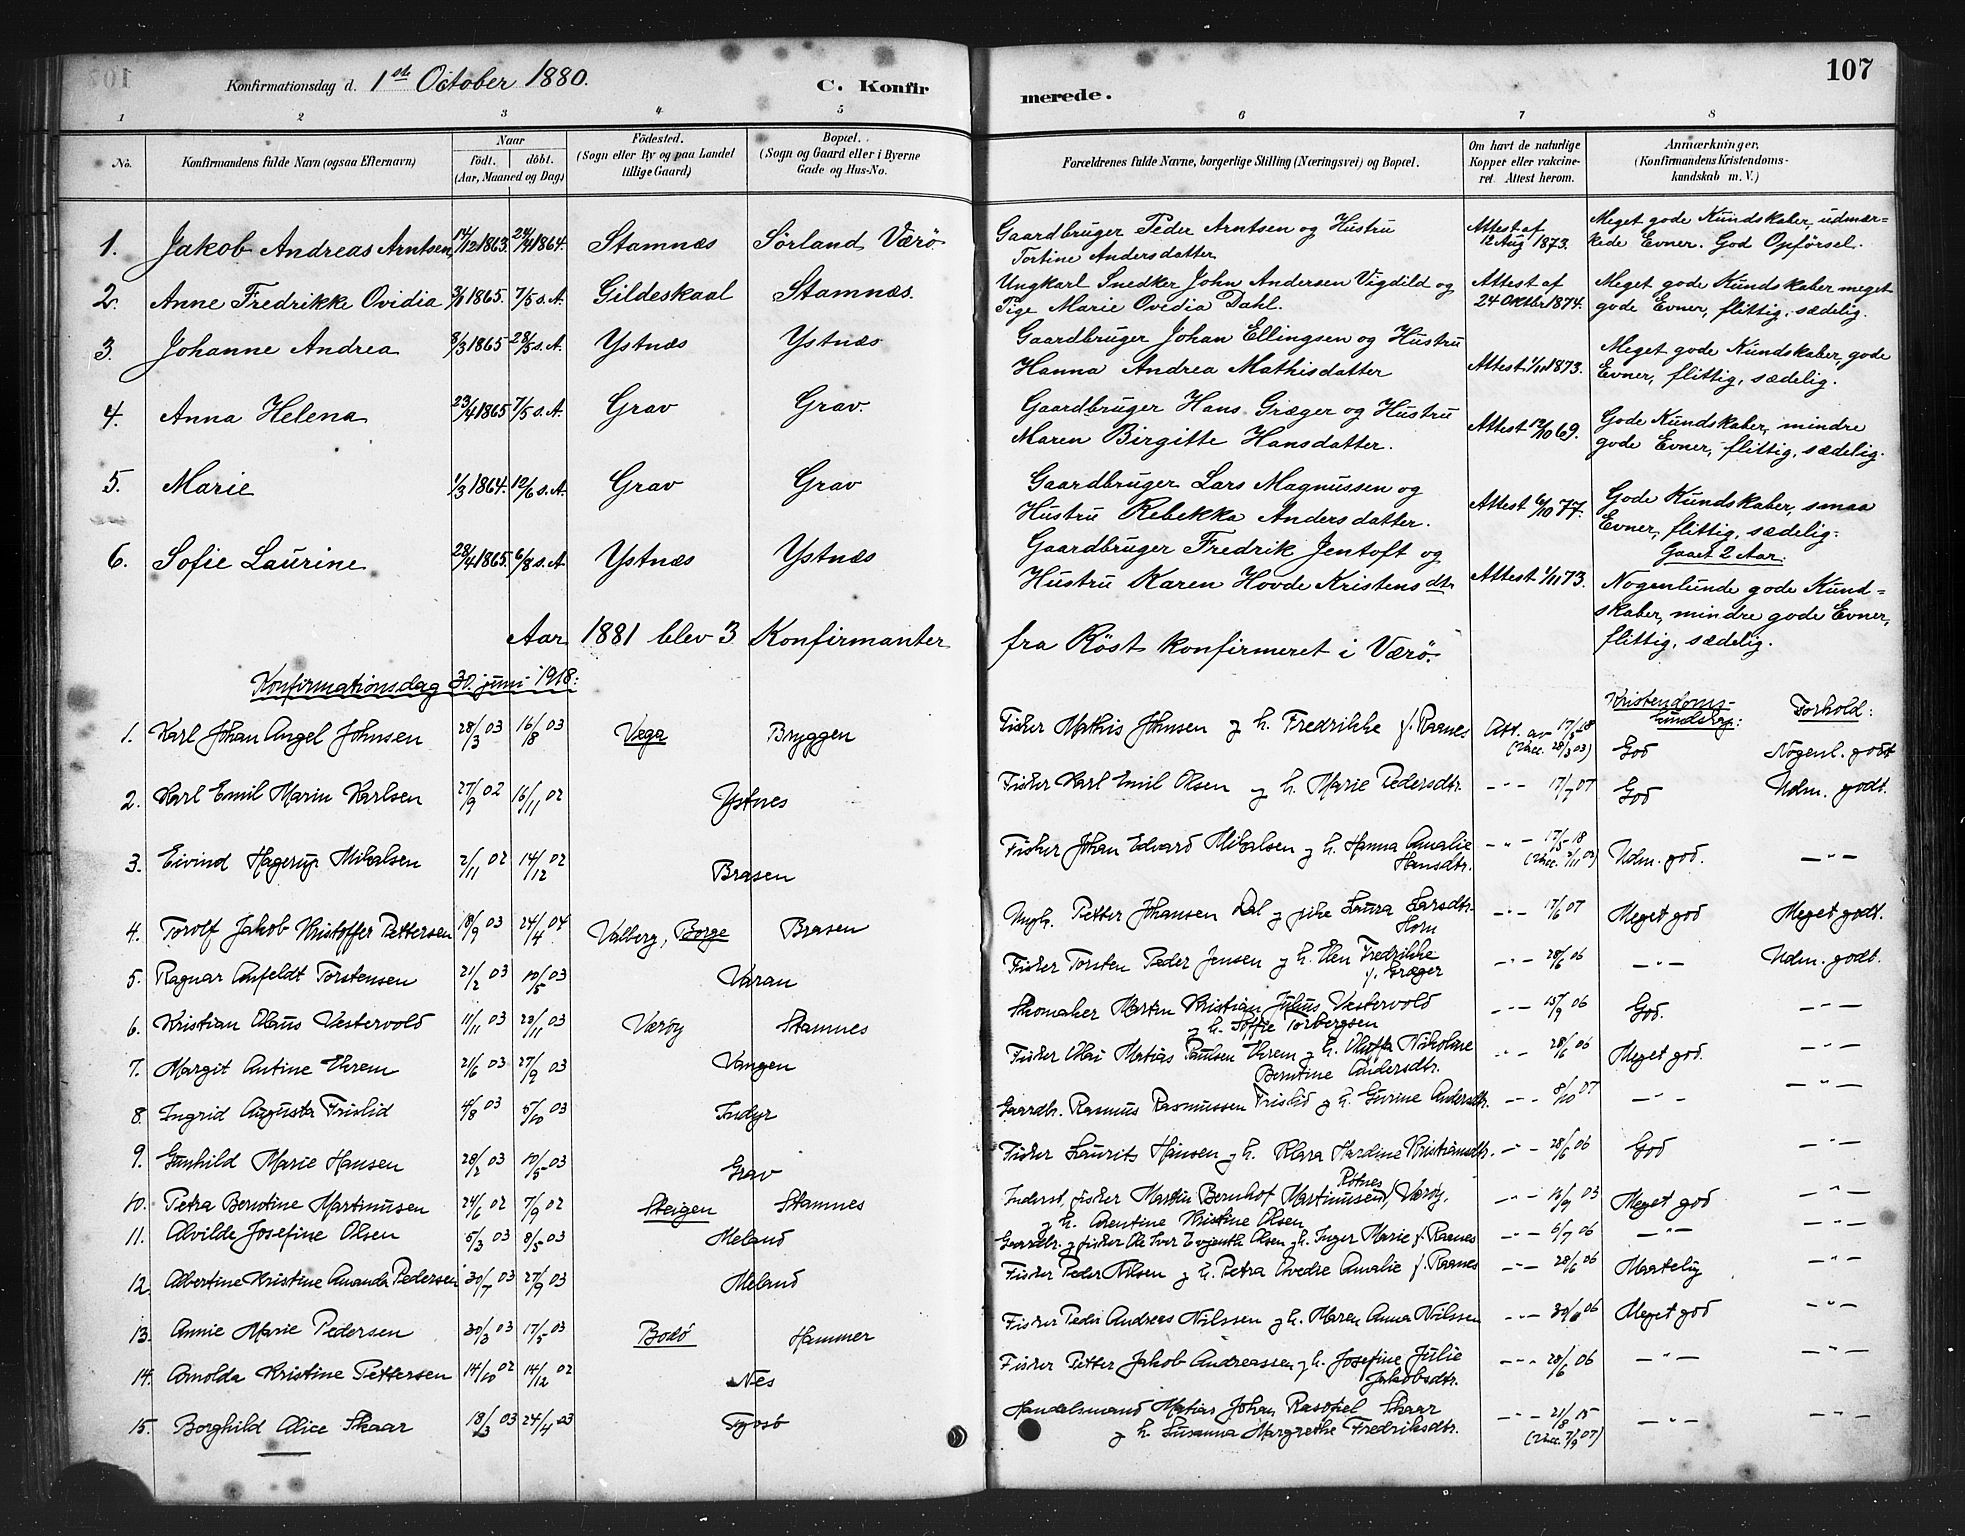 107
Konfirmationsdag d. 1ste October 1880. C. Konfirmerede.
1 2 3 4 5 6 7 8
No. Konfirmandens fulde Navn (ogsaa Efternavn) Naar födt. döbt. (Aar, Maaned og Dag) Födested. (Sogn eller By og paa Landet tillige Gaard) Bopæl. (Sogn og Gaard eller i Byerne Gade og Hus-No. Forældrenes fulde Navne, borgerlige Stilling (Næringsvei) og Bopæl. Om havt de naturlige Kopper eller vakcineret. Attest herom. Anmærkninger. (Konfirmandens Kristendomskundskab m. V.)
1. Jakob Andreas Arntsen 14/12 1863. 24/4 1864. Stamnæs Sörland Værö Gaardbruger Peder Arntsen og Hustru Tortine Andersdatter Attest af 12 Aug 1873. Meget gode Kundskaber, udmærkede Evner. God Opförsel.
2. Anne Fredrikke Ovidia 3/1 1865. 7/5 s. A. Gildeskaal Stamnæs. Ungkarl Snedker John Andersen Vigdild og Pige Marie Ovidia Dahl. Attest af 24 Oktbr 1874. Meget gode Kundskaber meget gode Evner, flittig, sædelig.
3. Johanne Andrea 3/3 1865 28/5 s. A. Ystnæs Ystnæs Gaardbruger Johan Ellingsen og Hustru Hanna Andrea Mathisdatter Attest 1/11 1873. Meget gode Kundskaber, gode Evner, flittig, sædelig.
4. Anna Helena 23/4 1865 7/5 s. A. Grav Grav. Gaardbruger Hans Græger og Hustru Maren Birgitte Hansdatter. Attest 12/10 69. Gode Kundskaber, mindre gode Evner, flittig, sædelig.
5. Marie 1/3 1864. 12/6 s. A. Grav Grav Gaardbruger Lars Magnussen og Hustru Rebekka Andersdatter. Attest 6/10 77. Gode Kundskaber, smaa Evner, flittig, sædelig. Gaaet 2 Aar.
6. Sofie Laurine 28/4 1865. 6/8 s. A Ystnæs Ystnæs Gaardbruger Fredrik Jentoft og Hustru Karen Hovde Kristensdtr Attest 1/11 73. Nogenlunde gode Kundskaber, mindre gode Evner, flittig, sædelig.
Aar 1881 blev 3 Konfirmanter fra Röst konfirmeret i Værö.
Konfirmationsdag 30. juni 1918: Kristendomskundskap: Forhold:
1. Karl Johan Angel Johnsen 28/3 03 16/8 03 Vega Bryggen Fisker Mathis Johnsen og h. Fredrikke f. Raanes Att. av 17/5 18 (Vacc. 28/3 03) God Nogenl. godt
2. Karl Emil Marin Karlsen 27/9 02 16/11 02 Ystnes Fisker Karl Emil Olsen og h. Marie Pedersdtr. — " — 17/7 07 God Udm. godt.
3. Eivind Hagerup Mikalsen 2/11 02 14/12 02 Brasen Fisker Johan Edvard Mikalsen og h. Hanna Amalie Hansdtr. — " — 17/5 18 Udm. god. — " —
4. Torolf Jakob Kristoffer Pettersen 18/9 03 24/4 04 Valberg, Borge Brasen Ungk. Petter Johansen Dal og pike Laura Larsdtr. Horn — " — 17/6 07 Meget god Meget godt.
5. Ragnar Anfeldt Torstensen 21/2 03 10/5 03 Varan Fisker Torsten Peder Jensen og h. Elen Fredrikke f. Græger — " — 28/6 06 — " — Udm. godt.
6. Kristian Olaus Vestervold 11/11 03 28/11 03 Væröy Stamnes Skomaker Martin Kristian Julius Vestervold og h. Soffie Torbergsen — " — 15/9 06 God. — " —
7. Margit Antine Ekrem 21/6 03 27/9 03 Vangen Fisker Olai Matias Paulsen Ekrem og h. Oluffa Nikoline Berntine Andersdtr. — " — 28/6 06 Meget god. — " —
8. Ingrid Augusta Frislid 4/8 03 5/10 03 Indyr Gaardbr. Rasmus Rasmussen Frislid og h. Gurine Andersdtr. — " — 8/10 07 — " — — " —
9. Gunhild Marie Hansen 28/2 03 10/5 03 Grav Fisker Laurits Hansen og h. Klara Hardine Kristiansdtr. — " — 28/6 06 God — " —
10. Petra Berntine Martinusen 24/6 02 7/9 02 Steigen Stamnes Inderst, fisker Martin Bernhof Martinussen, Væröy, og h. Arentine Kristine Olsen — " — 03 Meget god — " —
11. Alvilde Josefine Olsen 5/3 03 8/5 03 Meland Gaardbr. og fisker Ole Iver Evjenth Olsen og h. Inger Marie f. Raanes — " — 6/7 06 — " — — " —
12. Albertine Kristine Amanda Pedersen 30/7 03 27/9 03 Meland Fisker Peder Nilsen og h. Petra Avedre Amalie f. Raanes — " — 28/6 06 Maatelig — " —
13. Annie Marie Pedersen 30/3 03 17/5 03 Bodö Hammer Fisker Peder Andreas Nilssen og h. Maren Anna Nilssen — " — 30/6 06 Meget god — " —
14. Arnolda Kristine Pettersen 14/10 02 14/12 02 Nes Fisker Petter Jakob Andreassen og h. Josefine Julie Jakobsdtr. — " — 28/6 06 — " — — " —
15. Borghild Alice Skaar 18/3 03 24/4 03 Handelsmand Matias Johan Skaar og h. Susanna Margrethe Fredriksdtr. — " — 21/8 15 (Vacc. 7/9 07) — " — — " —